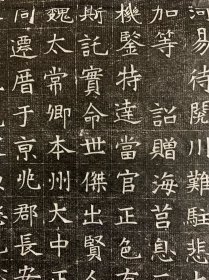 河易待閱川難駐悲
加等 詔贈海莒息
機鑒特達當官正色
斯託實命世傑出賢人
魏太常卿本州大中正
同遷厝于京兆郡長安